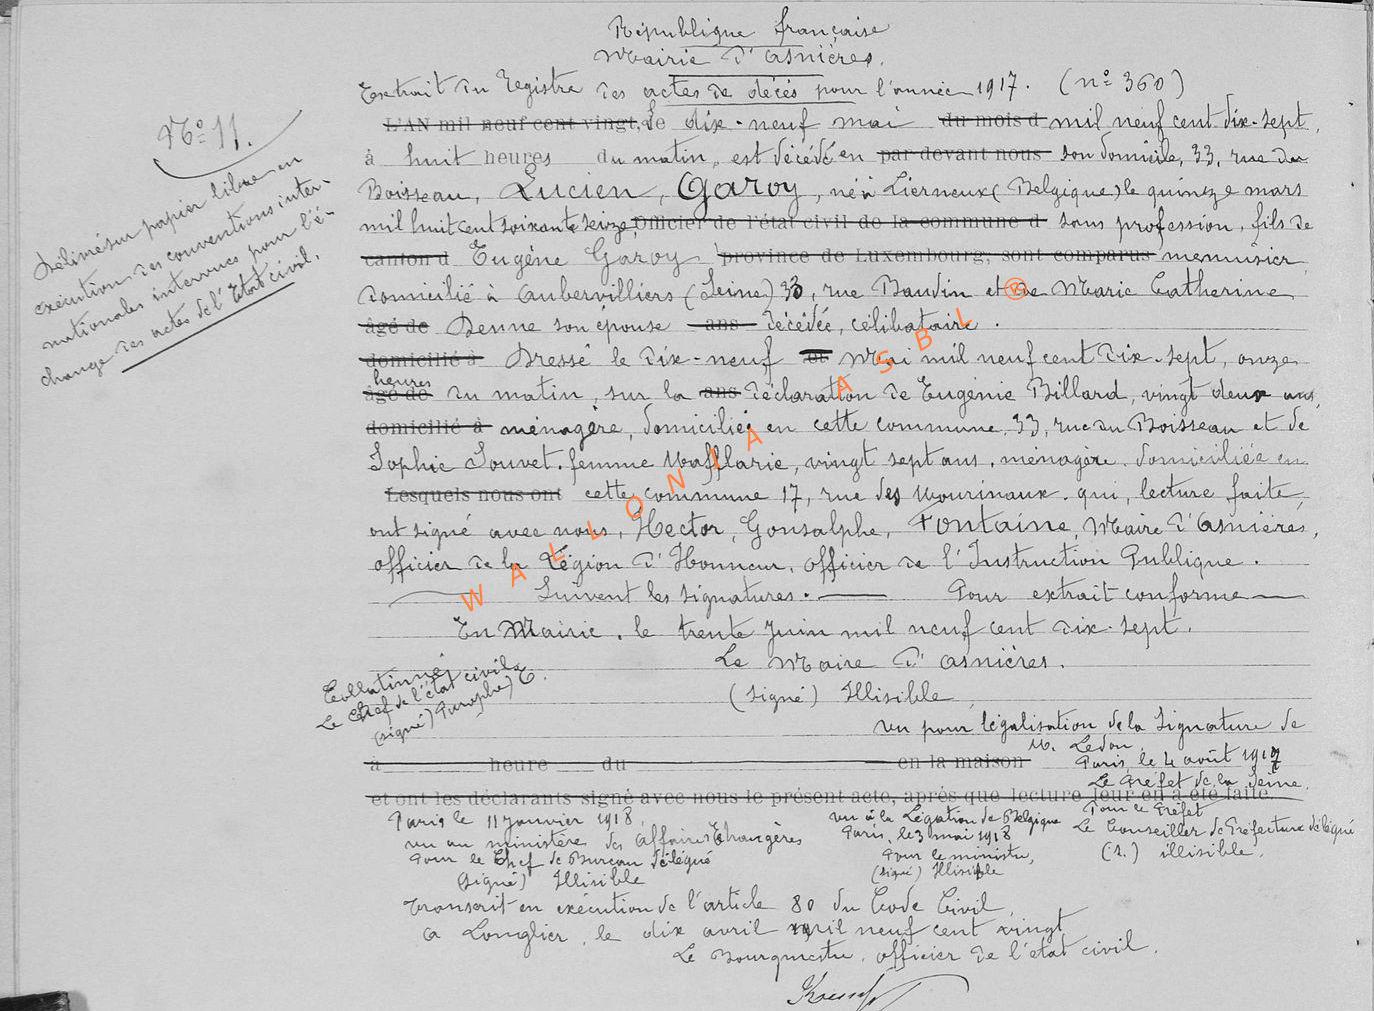 République française
Mairie d'Asnières.
Extrait du Registre des actes de décès pour l'année 1917. (n° 360)
N° 11.
Délivré sur papier libre en
exécution des conventions inter-
nationales intervenues pour l'é-
change des actes de l'Etat civil.
L'AN mil neuf cent vingt, Le dix-neuf mai du mois d mil neuf cent dix-sept,
à huit heures du matin, est décédé en par devant nous son domicile, 33, rue du
Boisseau, Lucien, Garoy, né à Lierneux (Belgique) le quinze mars
mil huit cent soixante seize, Officier de l'état civil de la commune d sans profession, fils de
canton d Eugène Garoy province de Luxembourg; sont comparus menuisier
domicilié à Aubervilliers (Seine) 33, rue Baudin et de Marie Catherine
âgé de Denne son épouse ans décédée, célibataire.
domicilié à Dressé le dix-neuf et Mai mil neuf cent dix-sept, onze
heures
âgé de du matin, sur la ans déclaration de Eugénie Billard, vingt deux ans,
domicilié à ménagère, domiciliée en cette commune, 33, rue du Boisseau et de
Sophie Louvet, femme, vingt sept ans, ménagère, domiciliée en
Lesquels nous ont cette commune 17, rue des Mourinaux, qui, lecture faite
ont signé avec nous, Hector, Gonsalphe, Fontaine, Maire d'Asnières,
officier de la Légion d'Honneur, officier de l'Instruction Publique.
Suivent les signatures. Pour extrait conforme
En Mairie, le trente Juin mil neuf cent dix-sept.
Le Maire d'Asnières.
(signé) Illisible,
Collationné
Le Chef de l'état civil
(signé)
Vu pour légalisation de la Signature de
M. Ledou
Paris, le 4 août 1917
Le Préfet de la Seine
Pour le Préfet
Le Conseiller de Préfecture délégué
(s.) illisible.
à heure du en la maison
et ont les déclarants signé avec nous le présent acte, après que lecture leur en a été faite.
Paris le 11 janvier 1918,
vu au ministère des Affaires Etrangères
Pour le Chef de Bureau délégué
(signé) Illisible
vu à la Légation de Belgique
Paris, le 3 mai 1918
Pour le ministre,
(signé) Illisible
Transcrit en exécution de l'article 80 du Code Civil,
à Longlier, le dix avril mil neuf cent vingt
Le Bourgmestre, officier de l'état civil.
WALLONIA ASBL ®